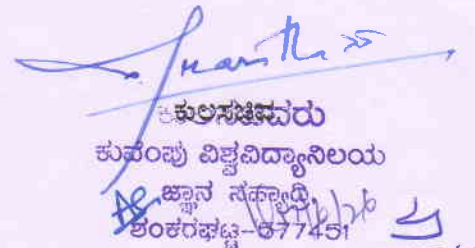 ಕುಲಸಚಿವರು
ಕುವೆಂಪು ವಿಶ್ವವಿದ್ಯಾನಿಲಯ
ಜ್ಞಾನ ಸಹ್ಯಾದ್ರಿ,
ಶಂಕರಘಟ್ಟ-577451